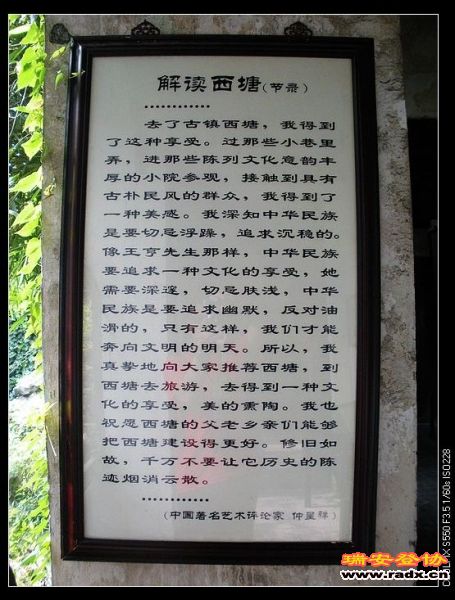 解读西塘(节录)
…………
去了古镇西塘，我得到
了这种享受。过那些小巷里
弄，进那些陈列文化意韵丰
厚的小院参观，接触到具有
古朴民风的群众，我得到了
一种美感。我深知中华民族
是要切忌浮躁，追求沉稳的。
像王亨先生那样，中华民族
要追求一种文化的享受，她
需要深邃，切忌肤浅，中华
民族是要追求幽默，反对油
滑的，只有这样，我们才能
奔向文明的明天。所以，我
真挚地向大家推荐西塘，到
西塘去旅游，去得到一种文
化的享受，美的熏陶。我也
祝愿西塘的父老乡亲们能够
把西塘建设得更好。修旧如
故，千万不要让它历史的陈
迹烟消云散。
…………
(中国著名艺术评论家 仲呈祥)
瑞安登协
www.radx.cn
S550 F3.5 1/60s ISO228